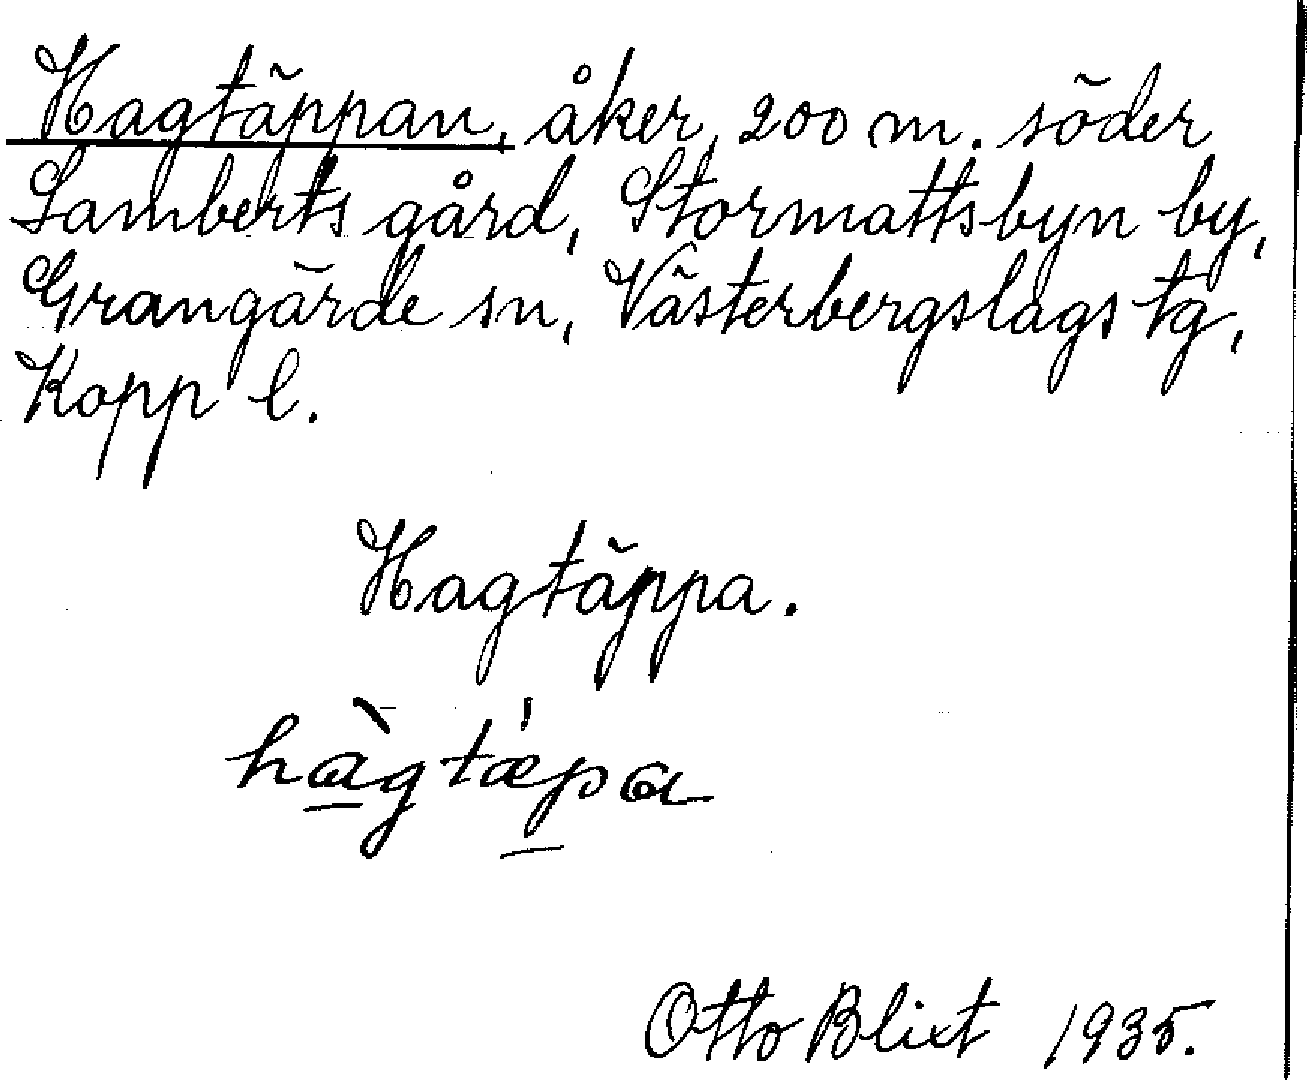 Hagtäppan, åker, 200 m. söder
Lamberts gård, Stormattsbyn by,
Grangärde sn, Västerbergslags tg,
Kopp l.
Hagtäppa.
hàgtæ̍pa
Otto Blixt 1935.